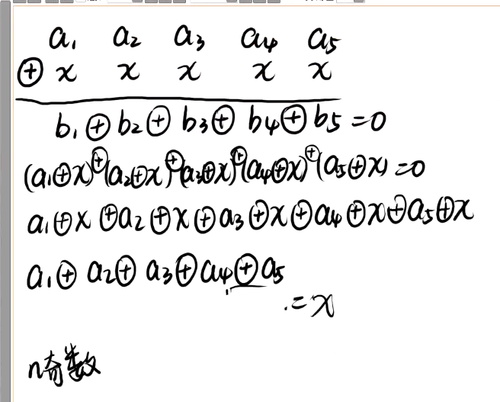 a₁ a₂ a₃ a₄ a₅
⊕ x x x x x
b₁ ⊕ b₂ ⊕ b₃ ⊕ b₄ ⊕ b₅ = 0
(a₁⊕x)⊕(a₂⊕x)⊕(a₃⊕x)⊕(a₄⊕x)⊕(a₅⊕x)=0
a₁⊕x⊕a₂⊕x⊕a₃⊕x⊕a₄⊕x⊕a₅⊕x
a₁⊕a₂⊕a₃⊕a₄⊕a₅
=x
n奇数